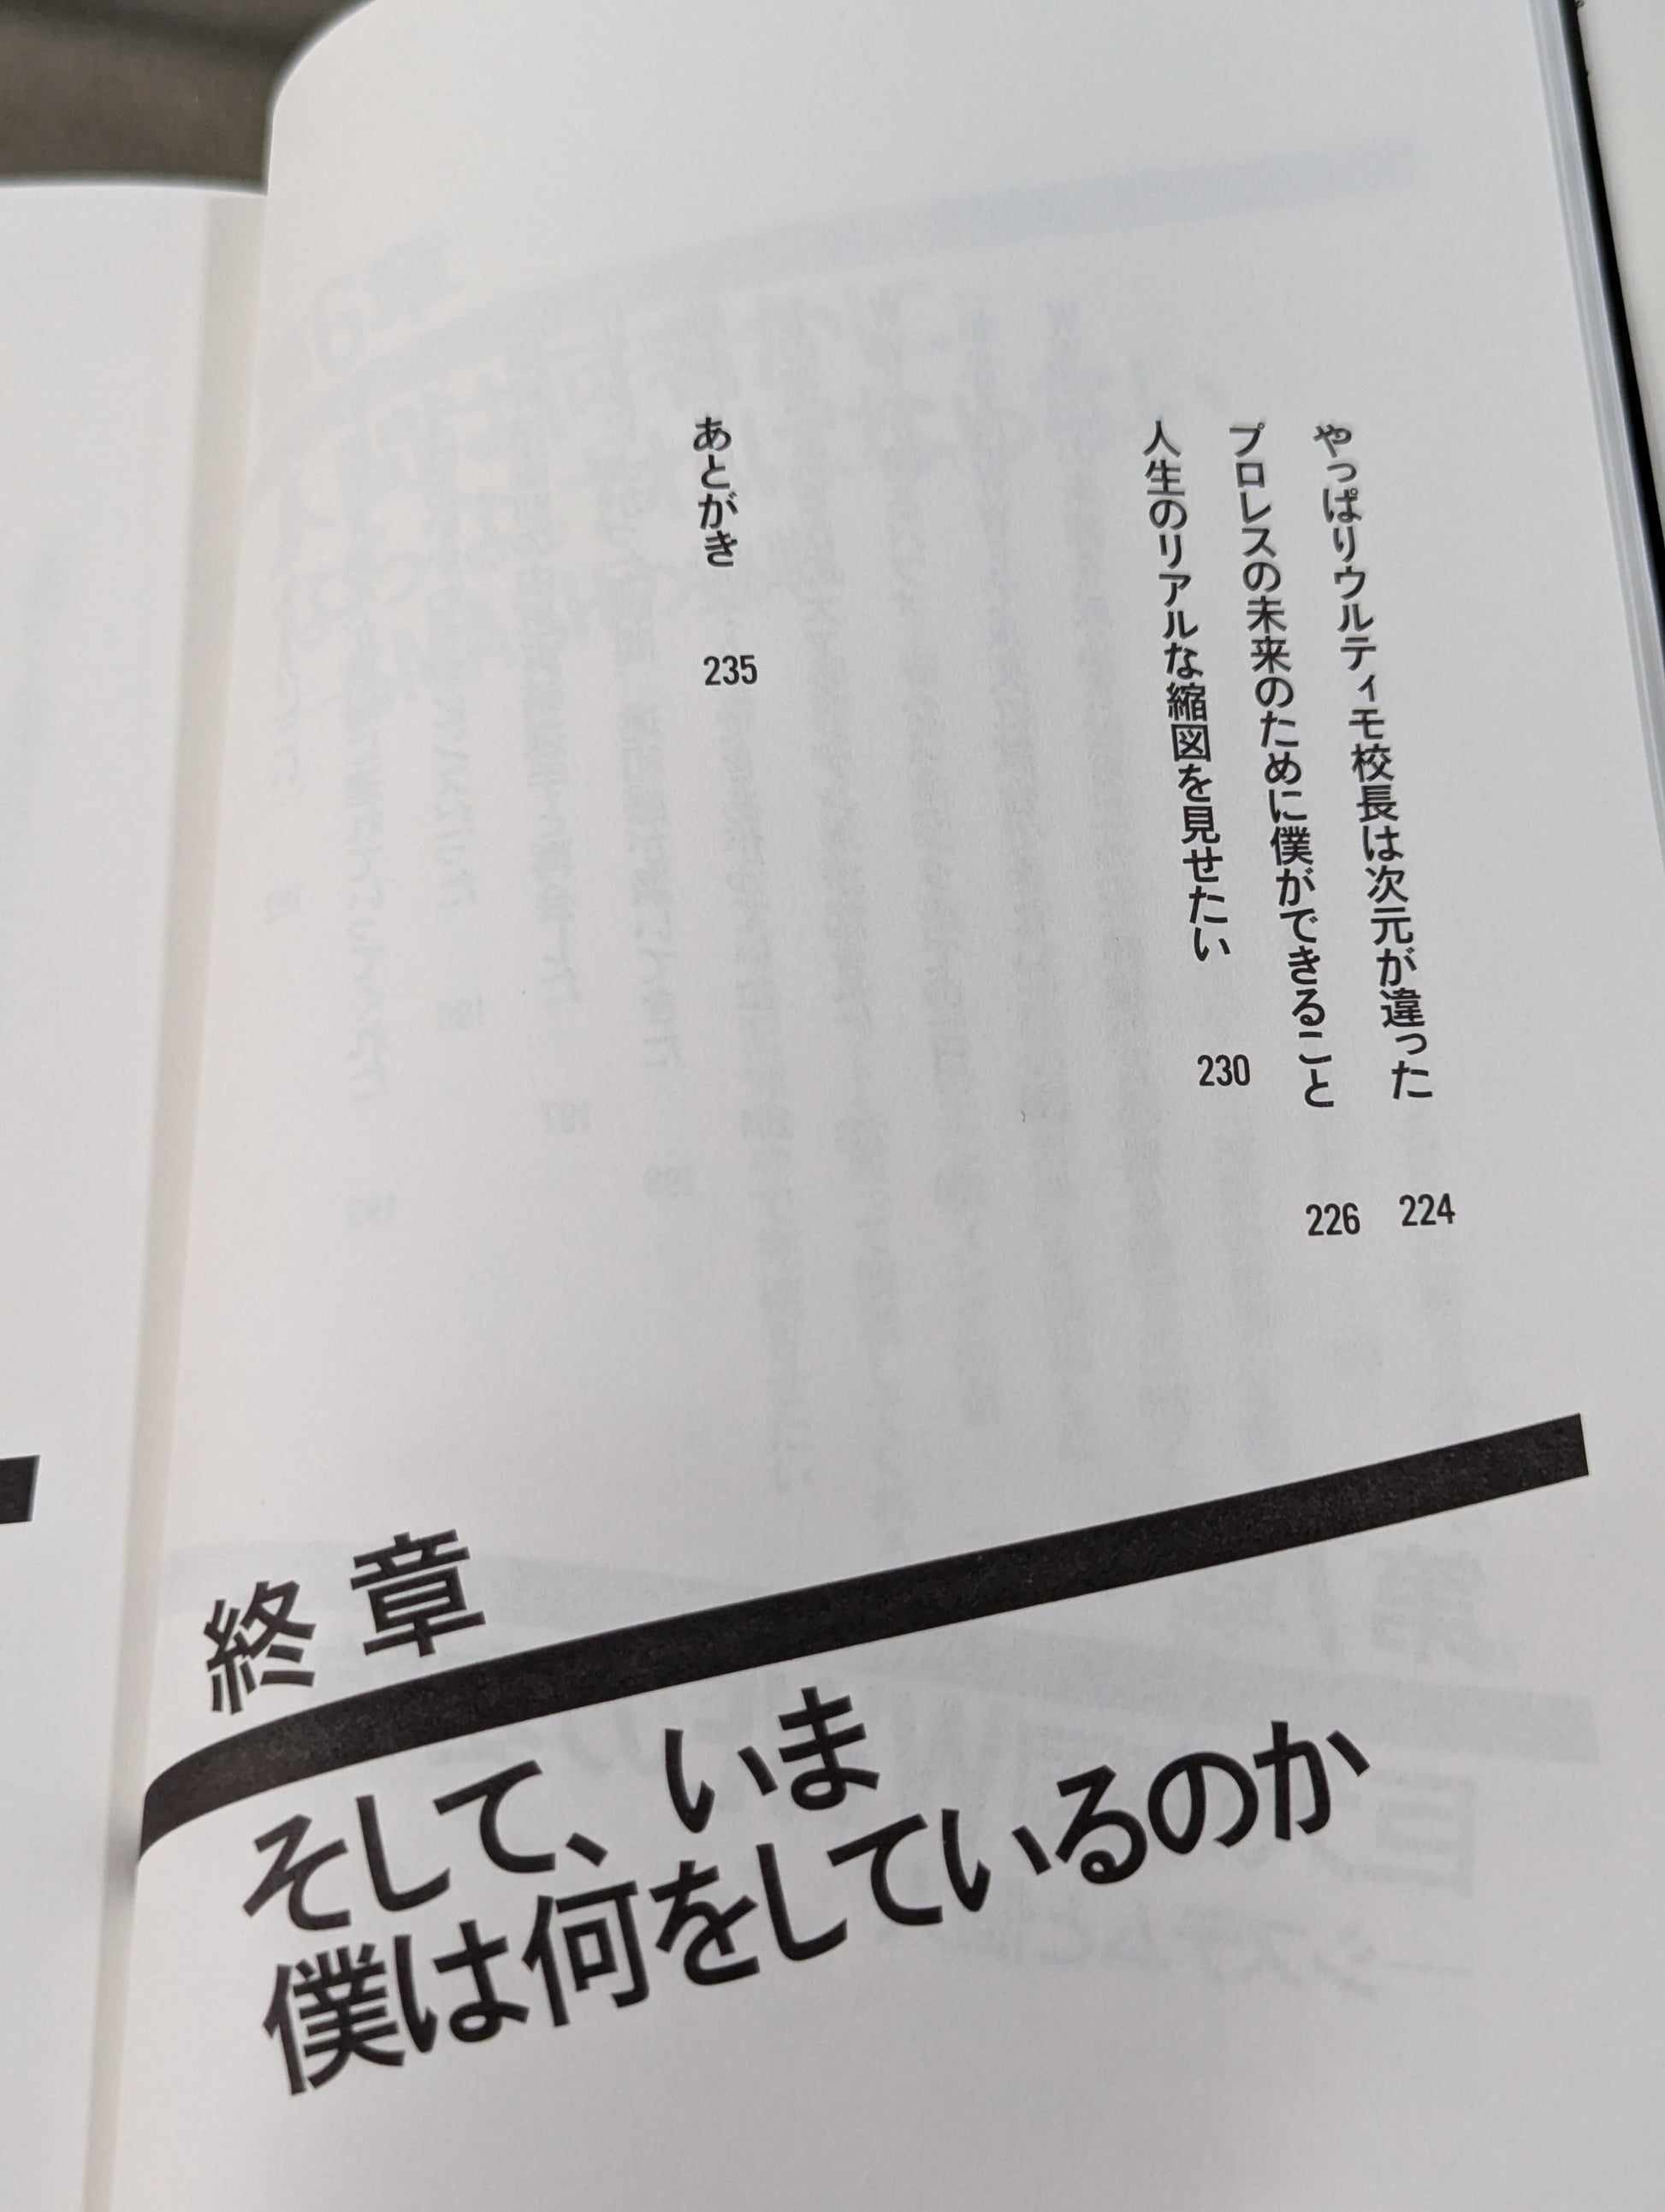 やっぱりウルティモ校長は次元が違った 224
プロレスの未来のために僕ができること 226
人生のリアルな縮図を見せたい 230
あとがき 235
終章
そして、いま
僕は何をしているのか